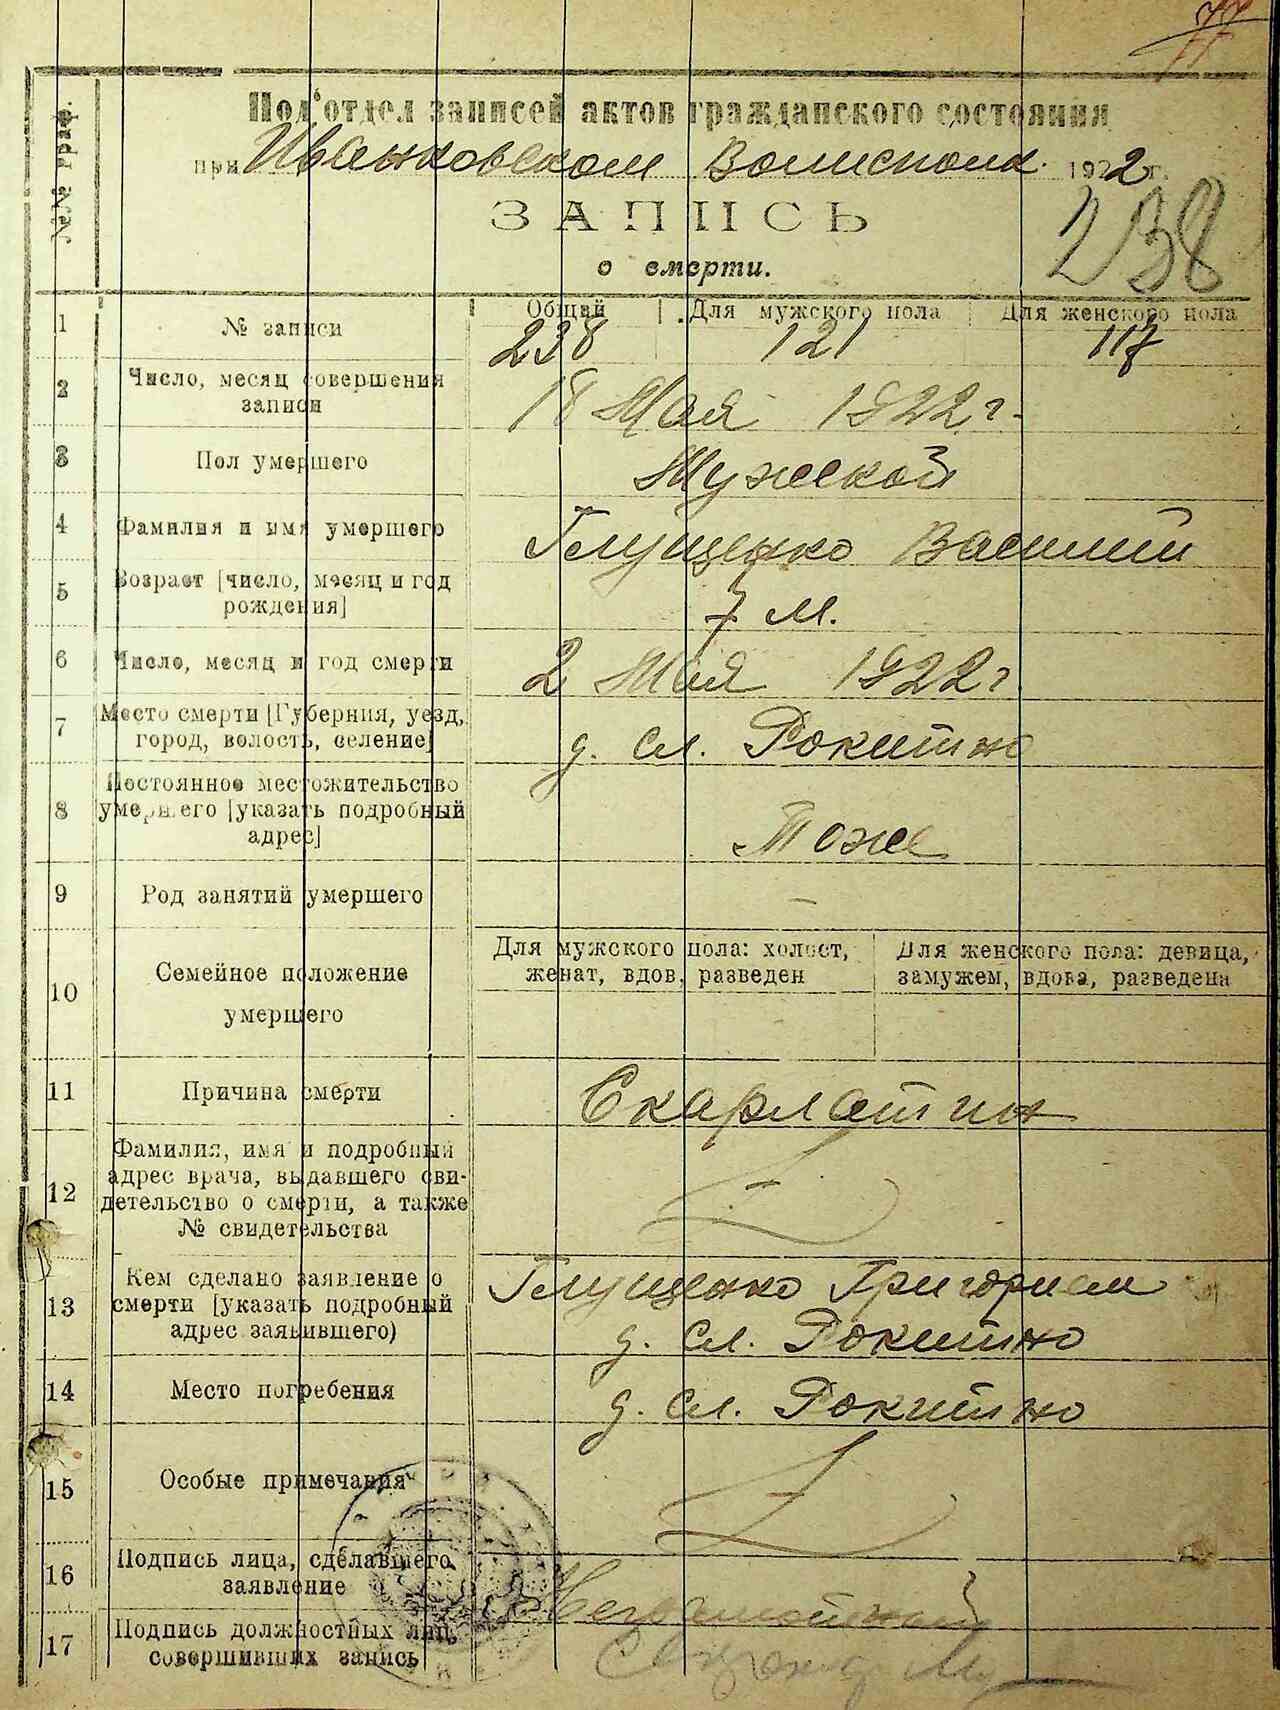 77
№№ граф.
Под'отдел записей актов гражданского состояния
при Иваньковском Волисполк. 1922 г.
ЗАПИСЬ
о смерти.
238
1 № записи Общий Для мужского пола Для женского пола
238 121 117
2 Число, месяц совершения
записи
18 Мая 1922 г.
3 Пол умершего Мужской
4 Фамилия и имя умершего Глущенко Василий
5 Возраст [число, месяц и год
рождения]
7 м.
6 Число, месяц и год смерти 2 Мая 1922 г
7 Место смерти [Губерния, уезд,
город, волость, селение]
д. сл. Рокитно
8 Постоянное местожительство
умершего [указать подробный
адрес]
Тоже
9 Род занятий умершего –
10 Семейное положение
умершего
Для мужского пола: холост,
женат, вдов, разведен
Для женского пола: девица,
замужем, вдова, разведена
11 Причина смерти Скарлатин
12 Фамилия, имя и подробный
адрес врача, выдавшего сви-
детельство о смерти, а также
№ свидетельства
13 Кем сделано заявление о
смерти [указать подробный
адрес заявившего)
Глущенко Григорием
д. сл. Рокитно
14 Место погребения д. сл. Рокитно
15 Особые примечания
16 Подпись лица, сделавшего
заявление
Неграмотный
17 Подпись должностных лиц,
совершивших запись